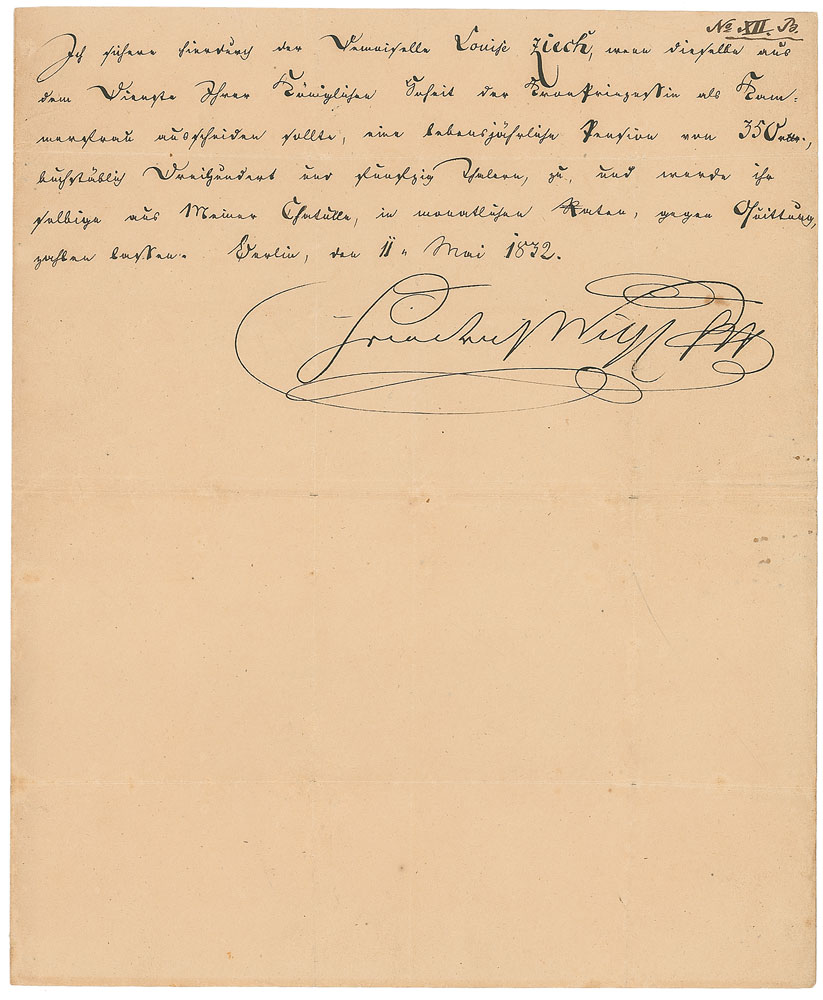 No XII. B.
Ich sichere hierdurch der Demoiselle Louise Ziech, wenn dieselbe aus
dem Dienste Ihrer Königlichen Hoheit der Kronprinzessin als Kam-
merfrau ausscheiden sollte, eine lebensjährliche Pension von 350 rthr.,
buchstäblich Dreihundert und funfzig Thalern, zu, und werde ihr
selbige aus Meiner Chatulle, in monatlichen Raten, gegen Quittung,
zahlen lassen. Berlin, den 11n Mai 1832.
Friedrich Wilh